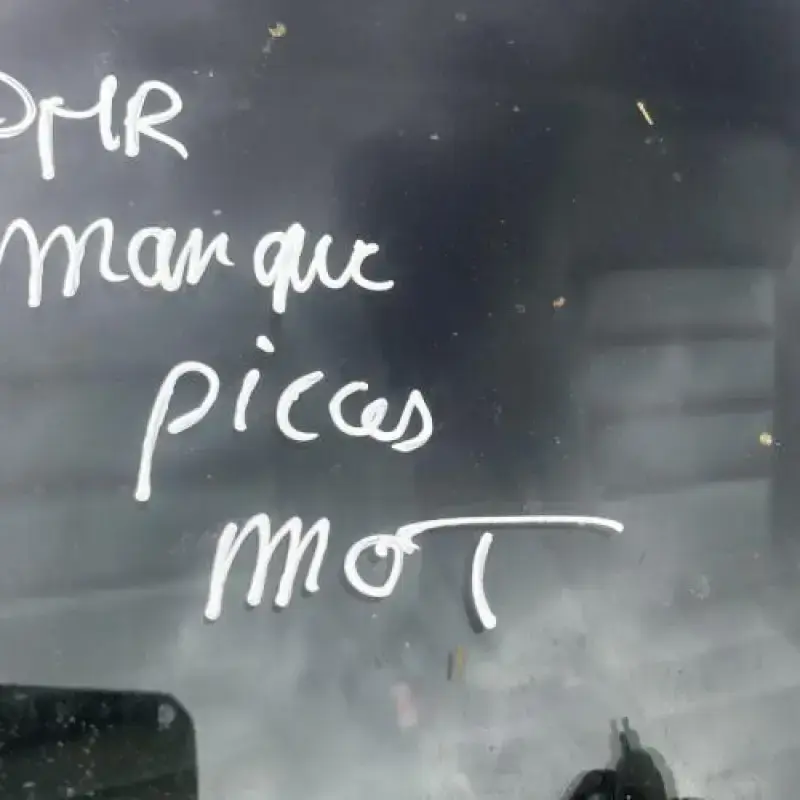 DMR
manque
pieces
MOT